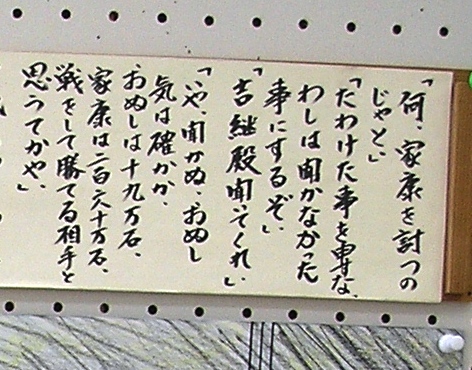 「何、家康を討つの
じゃと」
「たわけた事を専な、
わしは聞かなかった
事にするぞ」
「吉継殿聞いてくれ」
「いや、聞かぬ、おぬし
気は確かか、
おぬしは十九万石、
家康は二百六十万石、
戦をして勝てる相手と
思ってかや、